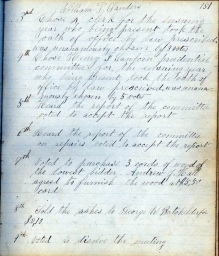 William T. Sanders
151
3rd Chose a clerk for the ensuing
year who being present took the
oath of office by law prescribed
was unanimously chosen by votes
4th Chose Henry Sampson prudential
committee for the ensuing year
who being present took the oath of
office by law prescribed was unani-
mously chosen by 5 votes
5th Heard the report of the committee
voted to accept the report
6th Heard the report of the committee
on repairs voted to accept the report
7th Voted to purchase 3 cords of wood of
the lowest bidder Andrew J. Hall
agreed to furnish the wood at
cord
8th Sold the ashes to George W.
9th Voted to dissolve the meeting